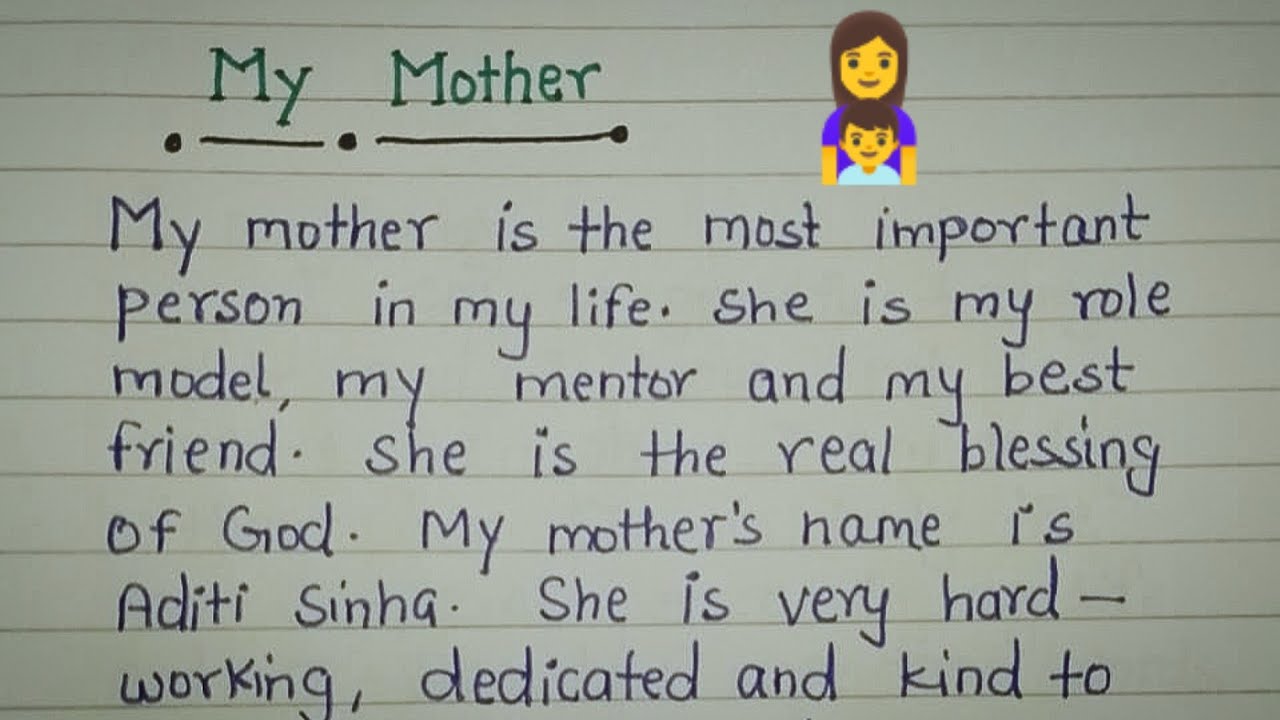 My Mother
My mother is the most important
person in my life. She is my role
model, my mentor and my best
friend. She is the real blessing
of God. My mother's name is
Aditi Sinha. She is very hard-
working, dedicated and kind to